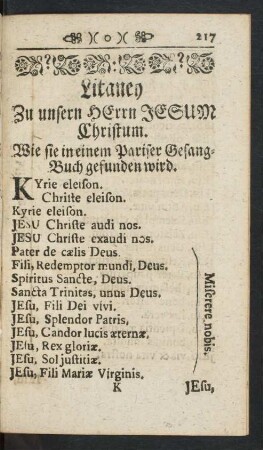 )( o )( 217
Litaney
Zu unsern HErrn JESUM
Christum.
Wie sie in einem Pariser Gesang-
Buch gefunden wird.
KYrie eleison.
Christe eleison.
Kyrie eleison.
JESU Christe audi nos.
JESU Christe exaudi nos.
Pater de cælis Deus.
Fili, Redemptor mundi, Deus.
Spiritus Sancte, Deus.
Sancta Trinitas, unus Deus.
JEsu, Fili Dei vivi.
JEsu, Splendor Patris,
JEsu, Candor lucis æternæ,
JEsu, Rex gloriæ.
JEsu, Sol justitiæ.
JEsu, Fili Mariæ Virginis.
Miserere nobis.
K JEsu,